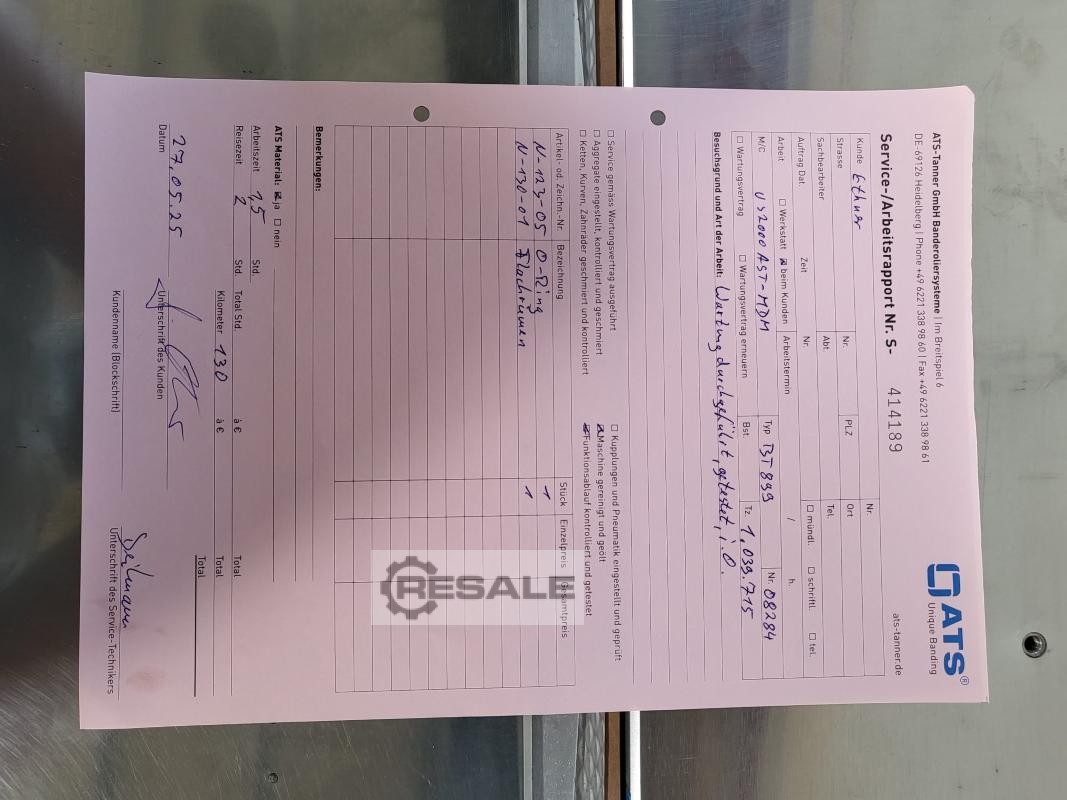 ATS-Tanner GmbH Banderoliersysteme | Im Breitspiel 6
DE-69126 Heidelberg | Phone +49 6221 338 98 60 | Fax +49 6221 338 98 61
ATS®
Unique Banding
ats-tanner.de
Service-/Arbeitsrapport Nr. S- 414189
Kunde Nr.
Strasse Nr. PLZ Ort
Sachbearbeiter Abt. Tel.
Auftrag Dat. Zeit Nr. ☐ mündl. ☐ schriftl. ☐ tel.
Arbeit ☐ Werkstatt ☒ beim Kunden Arbeitstermin / h.
M/C US2000 AST-MDM Typ BT899 Nr. 08284
☐ Wartungsvertrag ☐ Wartungsvertrag erneuern Bst. Tz. 1.039.715
Besuchsgrund und Art der Arbeit: Wartung durchgeführt, getestet, i.O.
☐ Service gemäss Wartungsvertrag ausgeführt ☐ Kupplungen und Pneumatik eingestellt und geprüft
☐ Aggregate eingestellt, kontrolliert und geschmiert ☒ Maschine gereinigt und geölt
☐ Ketten, Kurven, Zahnräder geschmiert und kontrolliert ☒ Funktionsablauf kontrolliert und getestet
Artikel- od. Zeichn.-Nr. Bezeichnung Stück Einzelpreis Gesamtpreis
N-123-05 O-Ring 1
N-130-01 Flachriemen 1
RESALE
Bemerkungen:
ATS Material: ☒ ja ☐ nein
Arbeitszeit 1,5 Std. Total Std. à € Total
Reisezeit 2 Std. Kilometer 130 à € Total
Total
27.05.25
Datum Unterschrift des Kunden
Kundenname (Blockschrift) Unterschrift des Service-Technikers